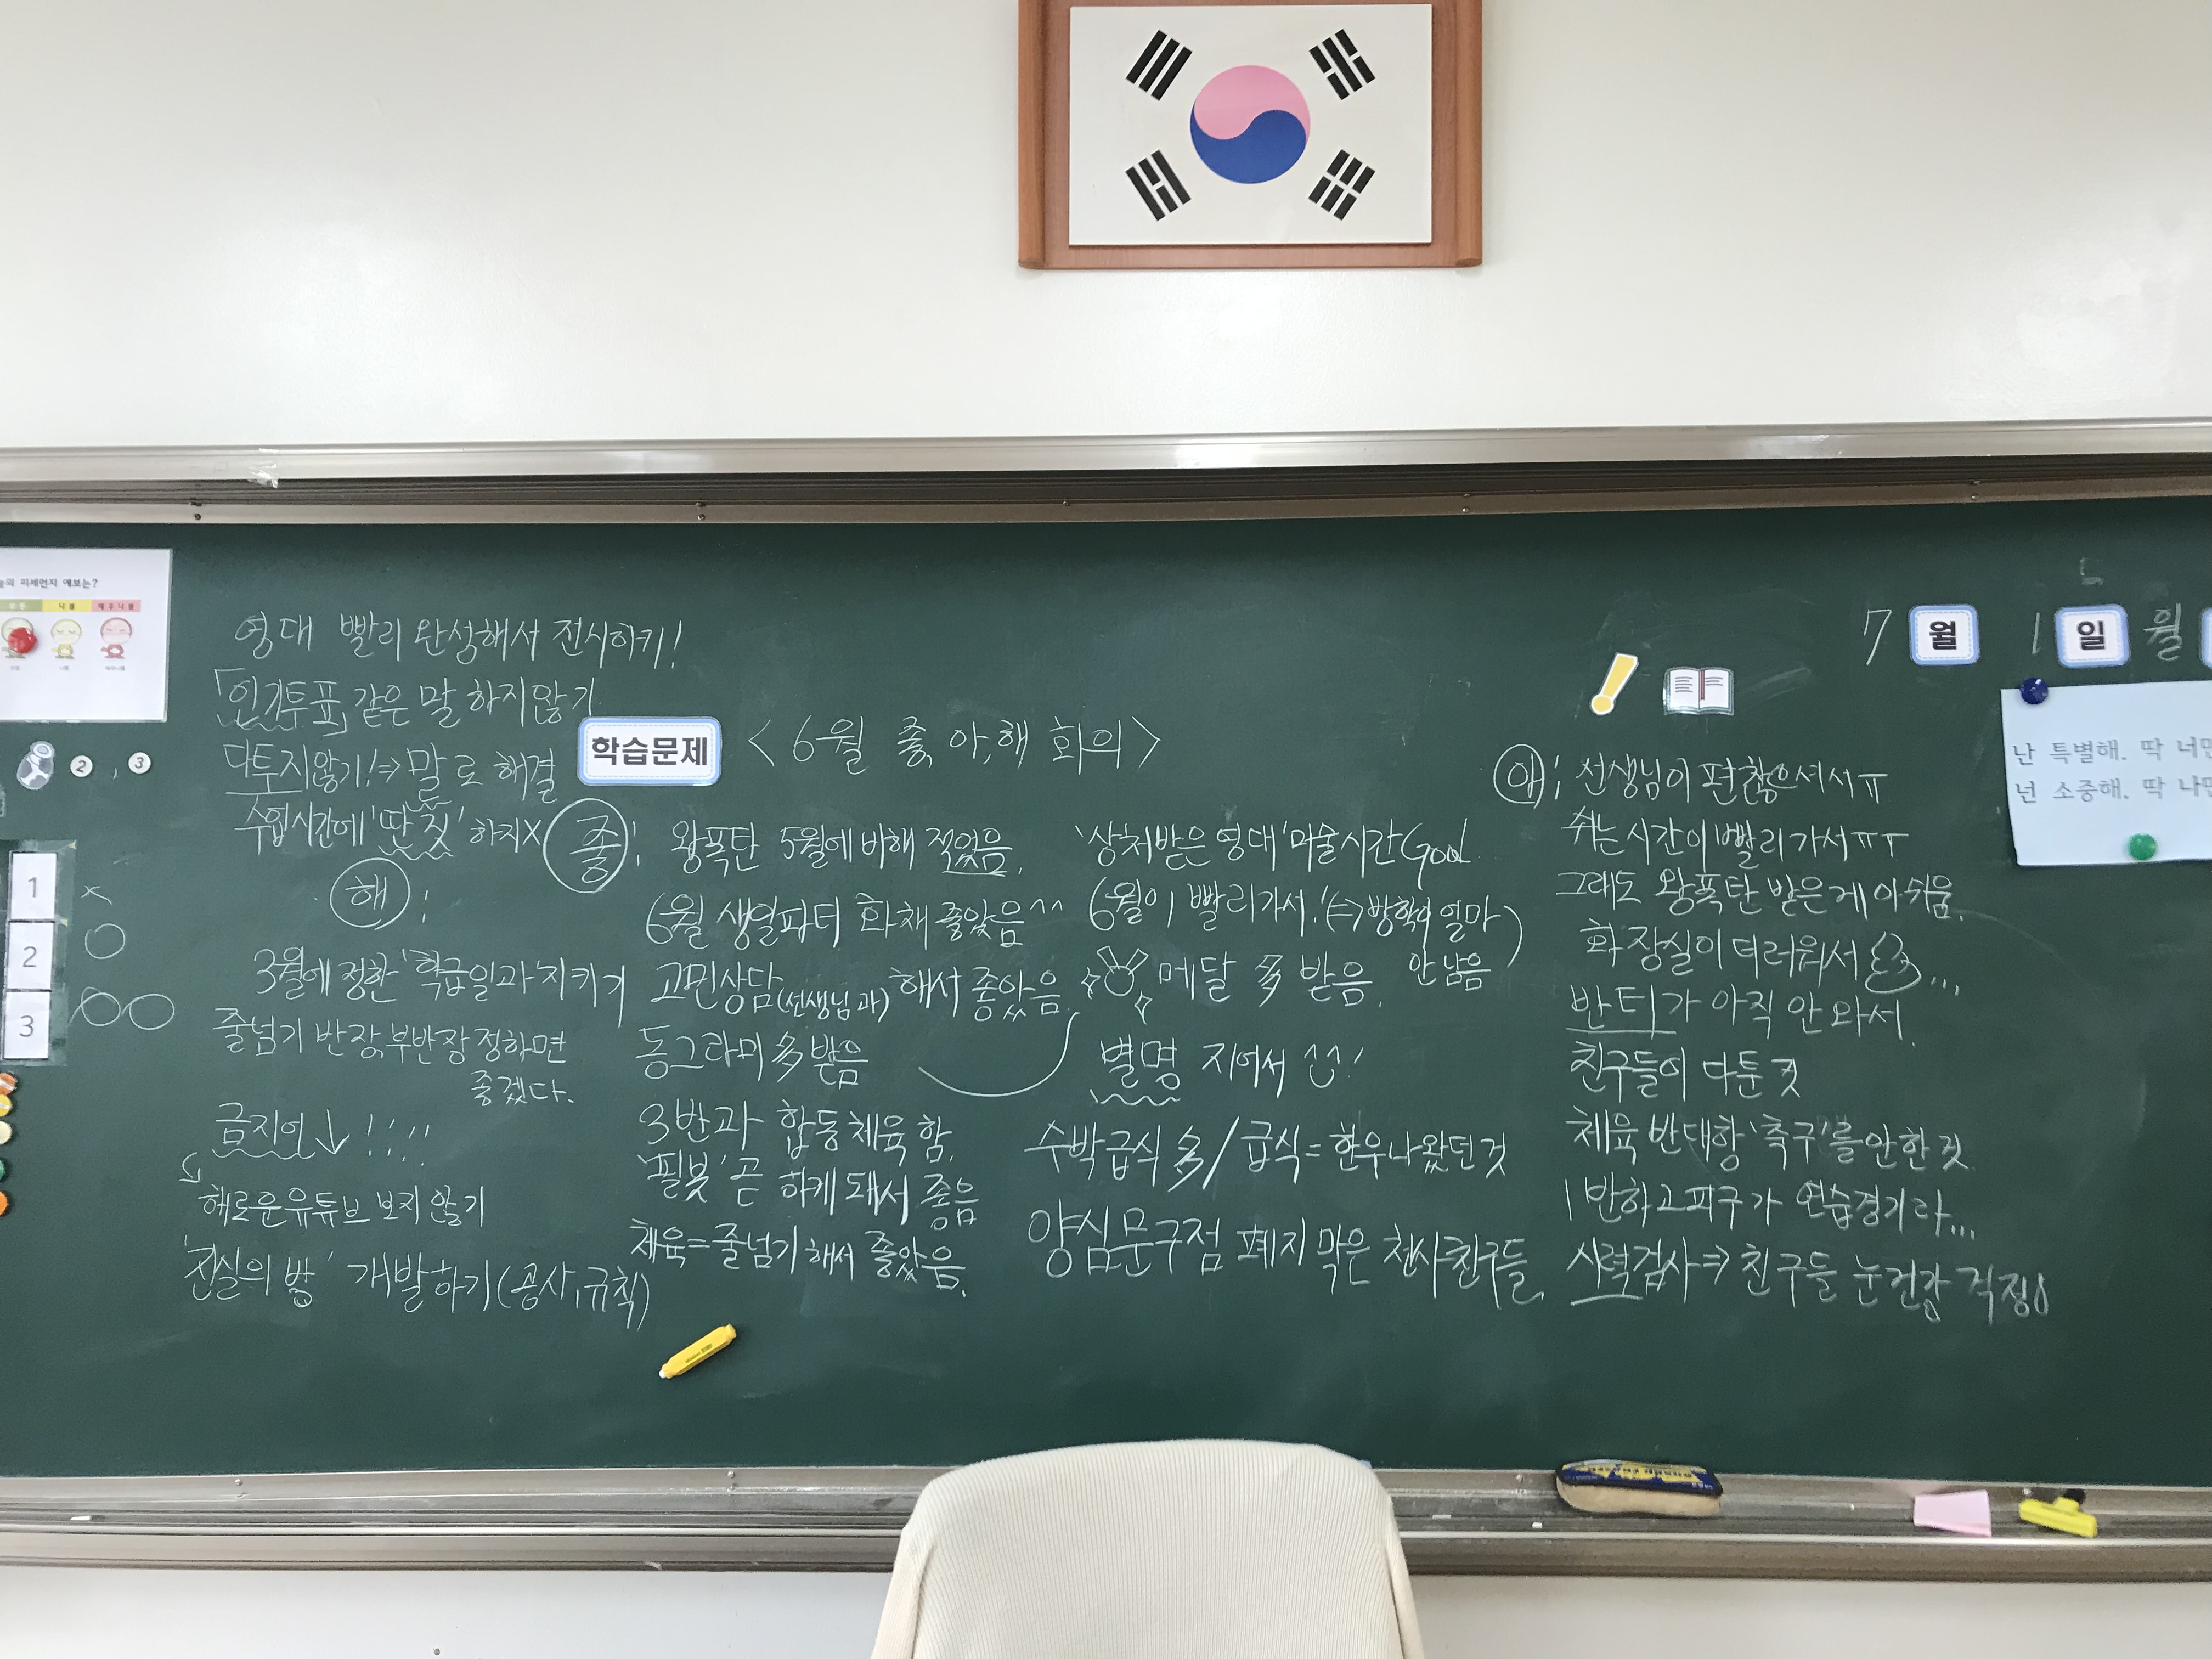 늘의 미세먼지 예보는?
나쁨
매우나쁨
2, 3
1 ×
2 ○
3 ○○
영대 빨리 완성해서 전시하기!
「인기투표」 같은 말 하지않기
다투지않기!⇒말로 해결
수업시간에 '딴짓' 하지X
해:
3월에 정한 '학급일과' 지키기
줄넘기 반장,부반장 정하면
좋겠다.
금지어↓!!!!
해로운 유튜브 보지 않기
'진실의 방' 개발하기(공사,규칙)
학습문제
<6월 좋,아,해 회의>
좋:
왕폭탄 5월에 비해 적었음.
6월 생일파티 화채 좋았음^^
고민상담(선생님과) 해서 좋았음.
동그라미 多 받음
3반과 합동체육 함.
'필봇' 곧 하게 돼서 좋음
체육=줄넘기 해서 좋았음.
'상처받은 영대' 미술시간 Good
6월이 빨리가서!(⇒방학이 얼마
안 남음)
메달 多 받음.
별명 지어서 ^^!
수박급식 多/급식=한우나왔던 것
양심문구점 폐지 막은 천사친구들.
7월 1일 월
아: 선생님이 편찮으셔서ㅠ
쉬는시간이 빨리가서ㅠㅠ
그래도 왕폭탄 받은게 아쉬움.
화장실이 더러워서...
반티가 아직 안 와서.
친구들이 다툰 것
체육 반대항 '축구'를 안한 것.
1반하고 피구가 연습경기라...
시력검사⇒친구들 눈건강 걱정
난 특별해. 딱 너만
넌 소중해. 딱 나만